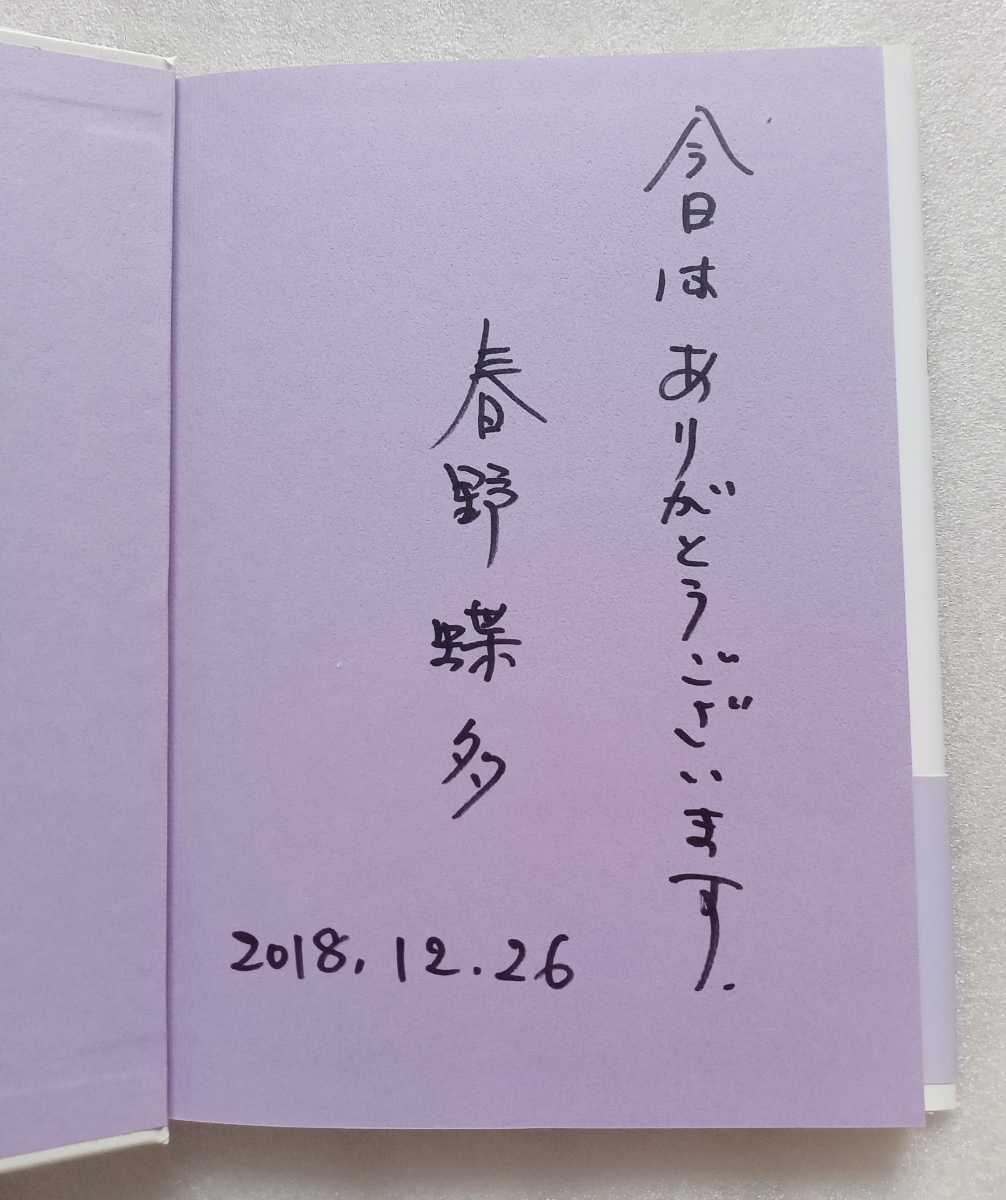 今日はありがとうございます.
春野蝶多
2018.12.26